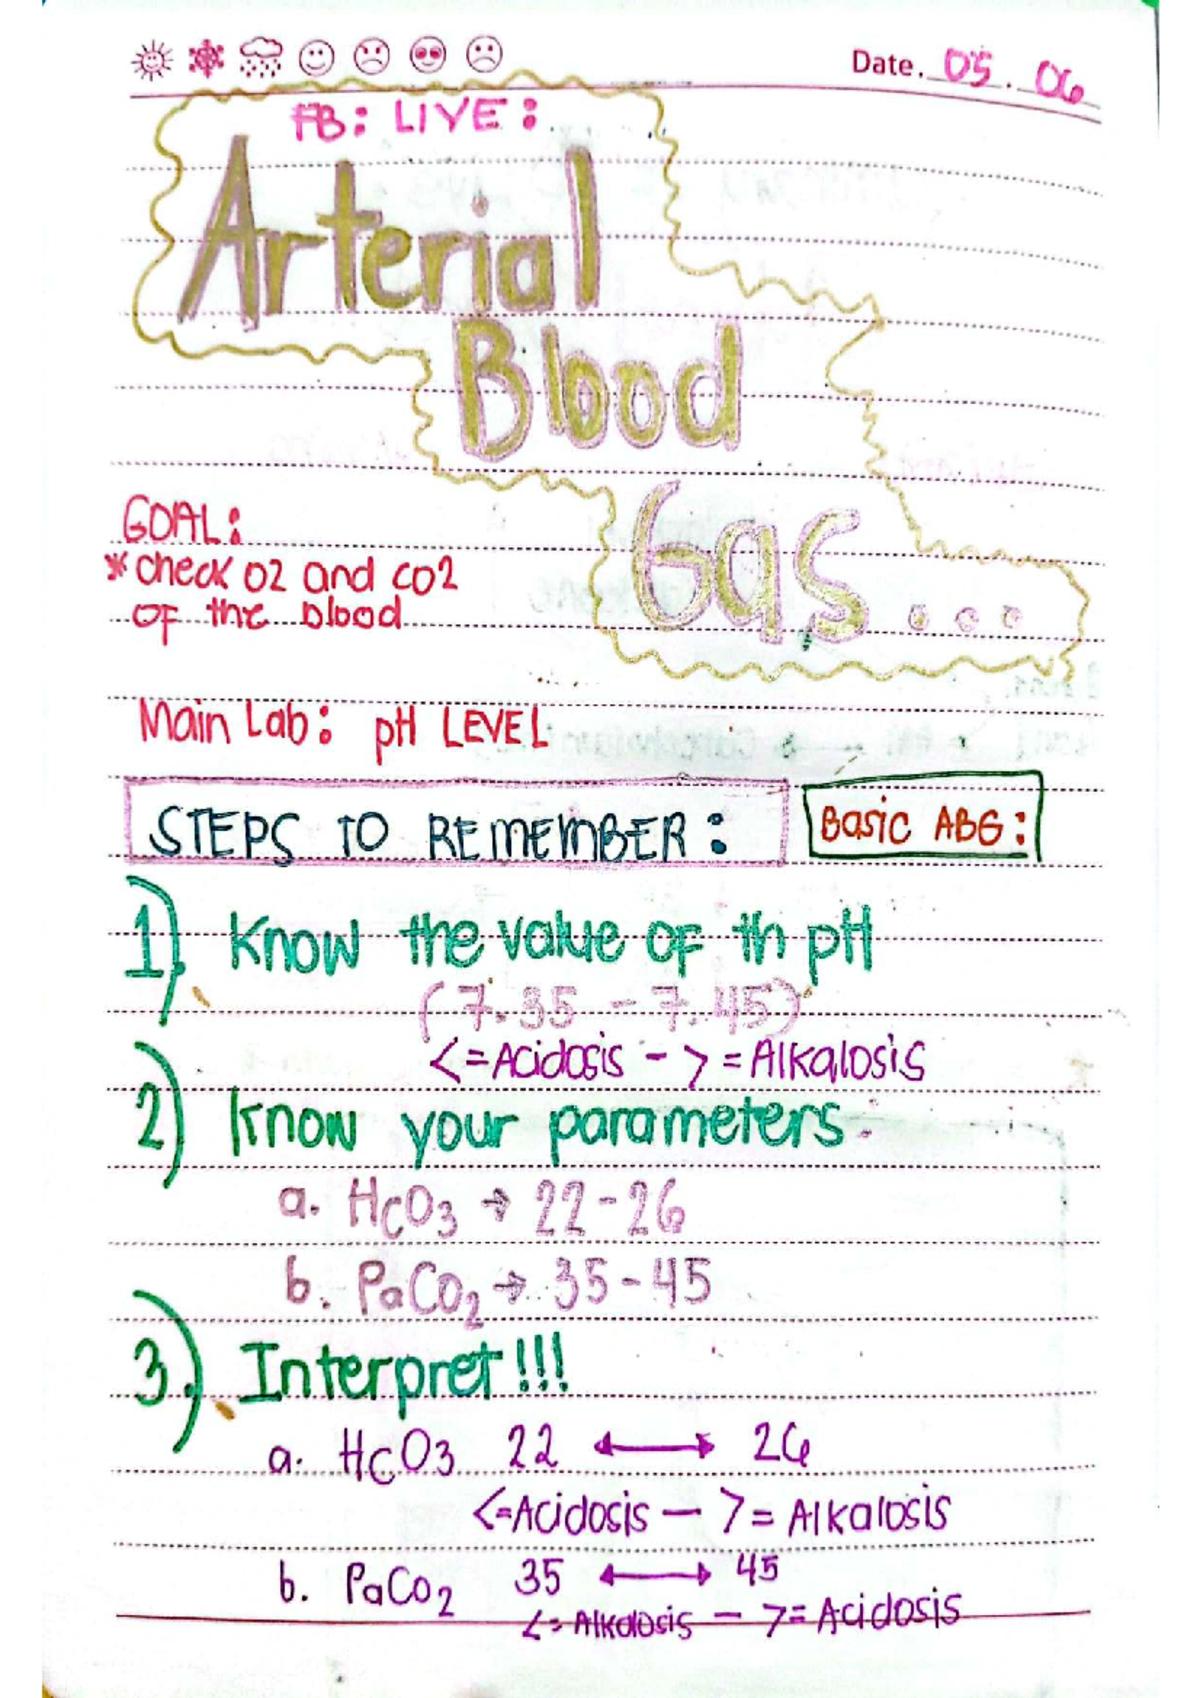 Date. 05. 06
FB: LIVE:
Arterial
Blood
Gas...
GOAL:
* check O2 and CO2
OF the blood
Main Lab: pH LEVEL
STEPS TO REMEMBER:
Basic ABG:
1) Know the value OF th pH
(7.35 - 7.45)
<=Acidosis - >=Alkalosis
2) Know your parameters
a. HCO3 → 22-26
b. PaCO2 → 35-45
3.) Interpret!!!
a. HCO3 22 ↔ 26
<=Acidosis — >= Alkalosis
b. PaCO2 35 ↔ 45
<= Alkalosis — >= Acidosis